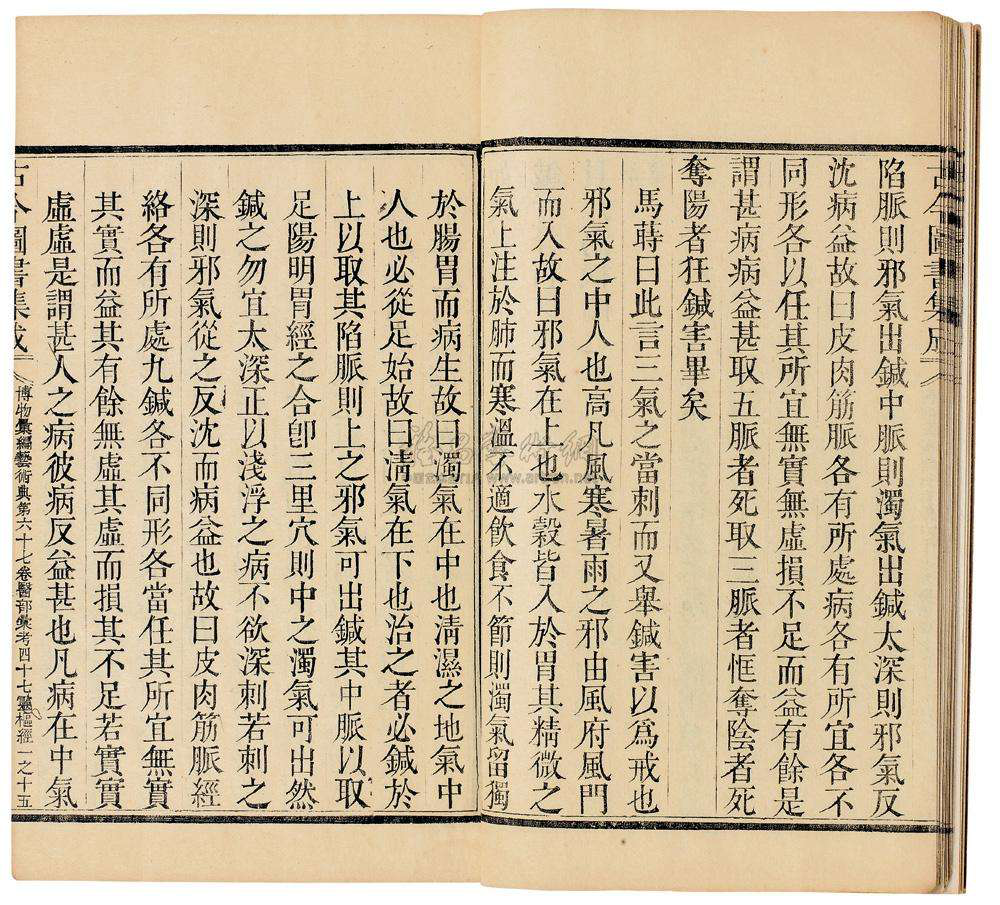 古今圖書集成
陷脈則邪氣出鍼中脈則濁氣出鍼太深則邪氣反
沈病益故曰皮肉筋脈各有所處病各有所宜各不
同形各以任其所宜無實無虛損不足而益有餘是
謂甚病病益甚取五脈者死取三脈者恇奪陰者死
奪陽者狂鍼害畢矣
馬蒔曰此言三氣之當刺而又舉鍼害以爲戒也
邪氣之中人也高凡風寒暑雨之邪由風府風門
而入故曰邪氣在上也水穀皆入於胃其精微之
氣上注於肺而寒溫不適飮食不節則濁氣留獨
於腸胃而病生故曰濁氣在中也淸濕之地氣中
人也必從足始故曰淸氣在下也治之者必鍼於
上以取其陷脈則上之邪氣可出鍼其中脈以取
足陽明胃經之合卽三里穴則中之濁氣可出然
鍼之勿宜太深正以淺浮之病不欲深刺若刺之
深則邪氣從之反沈而病益也故曰皮肉筋脈經
絡各有所處九鍼各不同形各當任其所宜無實
其實而益其有餘無虛其虛而損其不足若實實
虛虛是謂甚人之病彼病反益甚也凡病在中氣
古今圖書集成
博物彙編藝術典第六十七卷醫部彙考四十七靈樞經一之十五